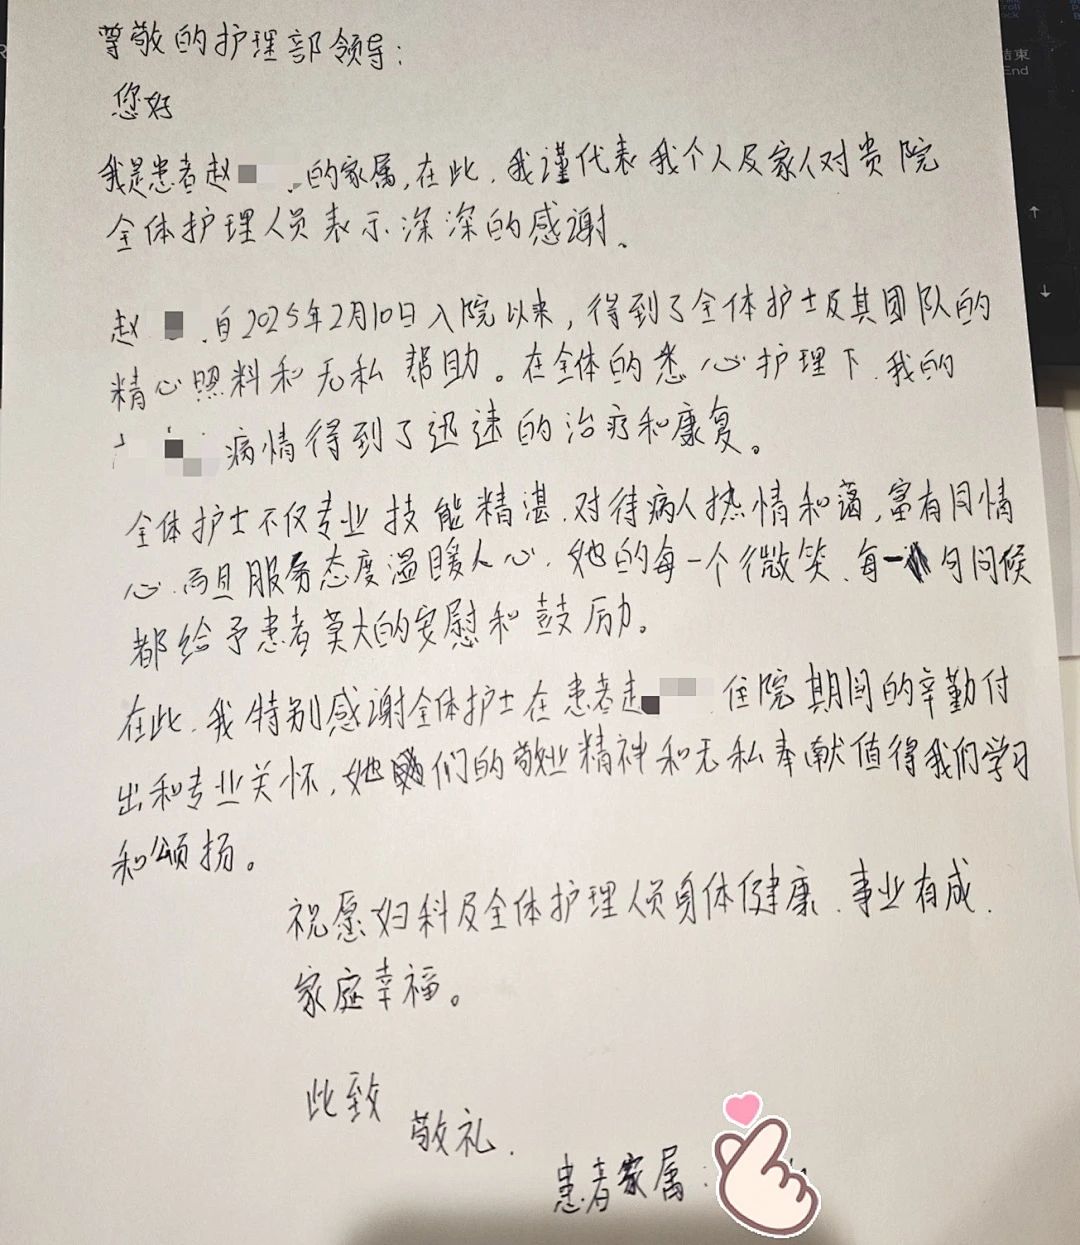 尊敬的护理部领导：
您好
我是患者赵 的家属,在此、我谨代表我个人及家人对贵院
全体护理人员表示深深的感谢、
赵 自2025年2月10日入院以来，得到了全体护士及其团队的
精心照料和无私帮助。在全体的悉心护理下、我的
病情得到了迅速的治疗和康复。
全体护士不仅专业技能精湛、对待病人热情和蔼,富有同情
心、而且服务态度温暖人心、她的每一个微笑、每一句问候
都给予患者莫大的安慰和鼓励。
在此、我特别感谢全体护士在患者赵 住院期间的辛勤付
出和专业关怀,她们的敬业精神和无私奉献值得我们学习
和颂扬。
祝愿妇科及全体护理人员身体健康、事业有成、
家庭幸福。
此致
敬礼.
患者家属：
结束
End
↑
↓